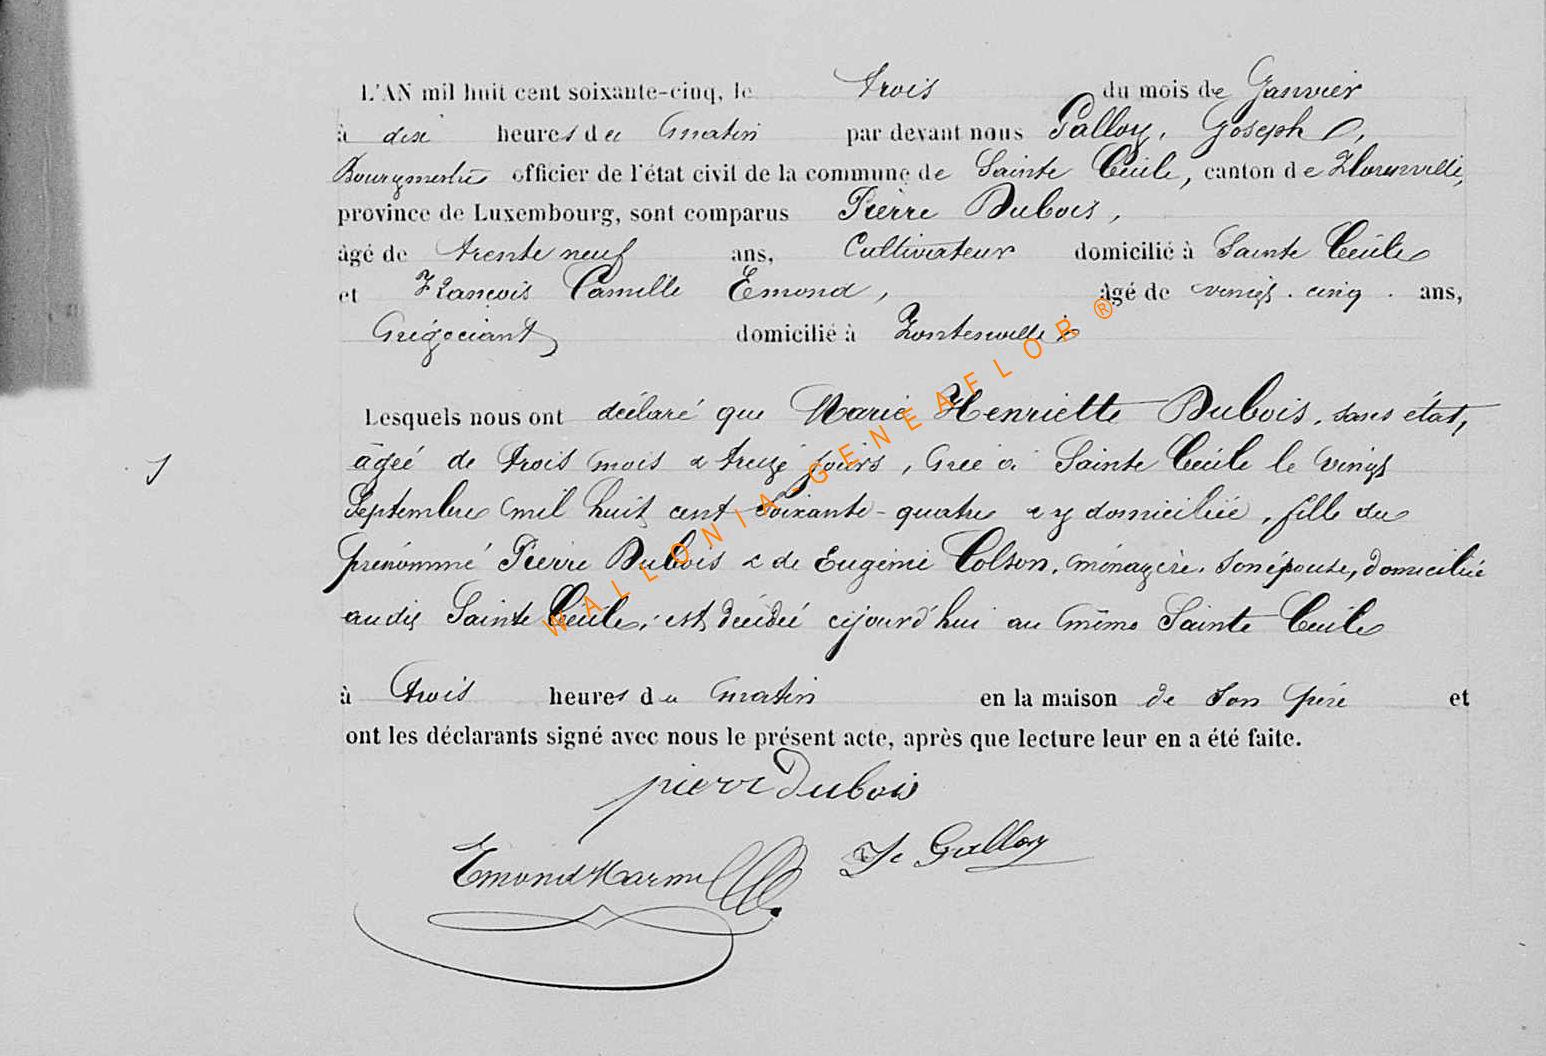 L'AN mil huit cent soixante-cinq, le trois du mois de Janvier
à dix heures du matin par devant nous Galloy, Joseph,
Bourgmestre officier de l'état civil de la commune de Sainte Cécile, canton de Florenville,
province de Luxembourg, sont comparus Pierre Dubois,
âgé de trente neuf ans, Cultivateur domicilié à Sainte Cécile
et François Camille Emond, âgé de vingt-cinq ans,
Négociant domicilié à Fontenoille
Lesquels nous ont déclaré que Marie Henriette Dubois, sans état,
âgée de trois mois & treize jours, née à Sainte Cécile le vingt
Septembre mil huit cent soixante-quatre & y domiciliée, fille du
prénommé Pierre Dubois & de Eugénie Colson, ménagère, son épouse, domiciliée
audit Sainte Cécile, est décédée cejourd'hui au même Sainte Cécile
à trois heures du matin en la maison de son père et
ont les déclarants signé avec nous le présent acte, après que lecture leur en a été faite.
pierre Dubois
Emond J. Galloy
WALLONIA-GENEAFLOR®